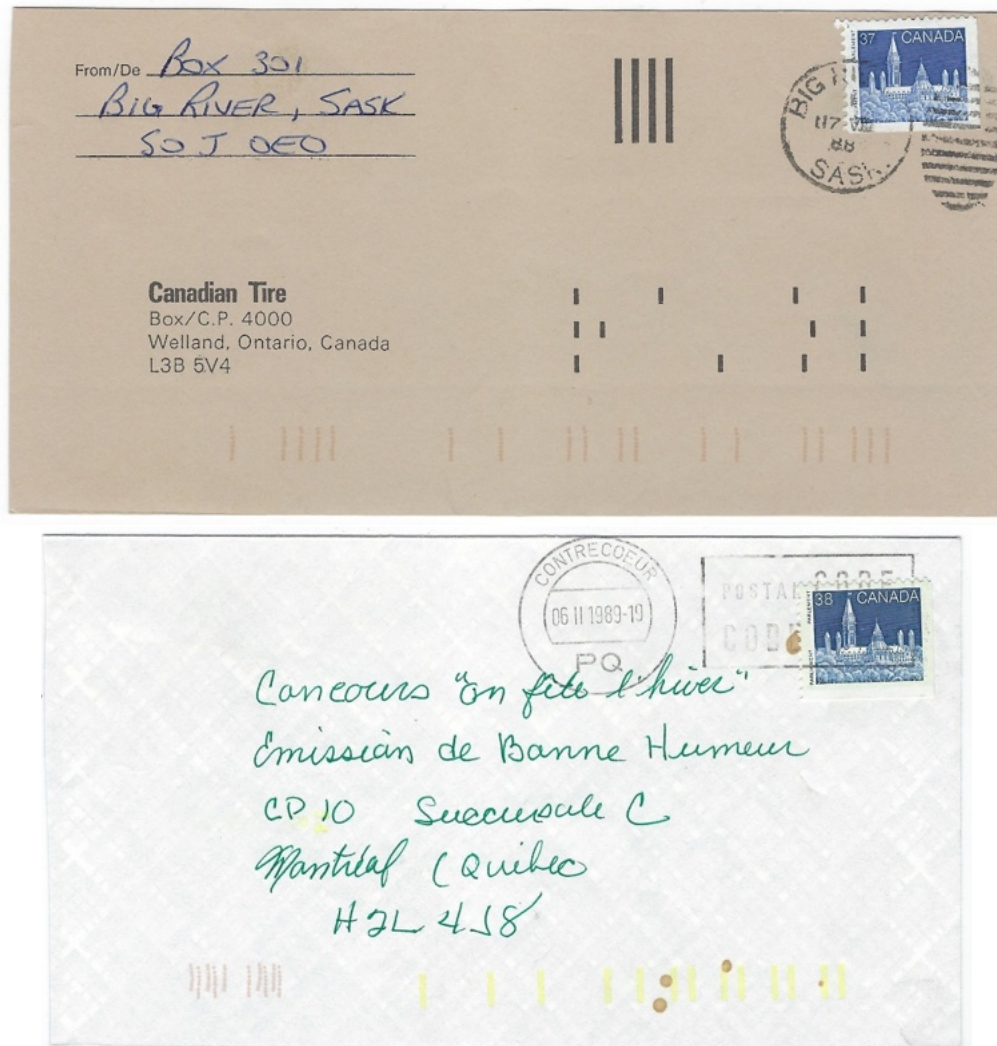 From/De Box 301
BIG RIVER, SASK
S0J 0E0
37 CANADA
BIG
88
SASK.
Canadian Tire
Box/C.P. 4000
Welland, Ontario, Canada
L3B 5V4
CONTRECOEUR
06 II 1989-19
PQ
POSTAL CODE
CODE
38 CANADA
PARLEMENT
PARLIAMENT
Concours "on fête l'hiver"
Émission de Bonne Humeur
CP 10 Succursale C
Montréal (Québec
H2L 4J8